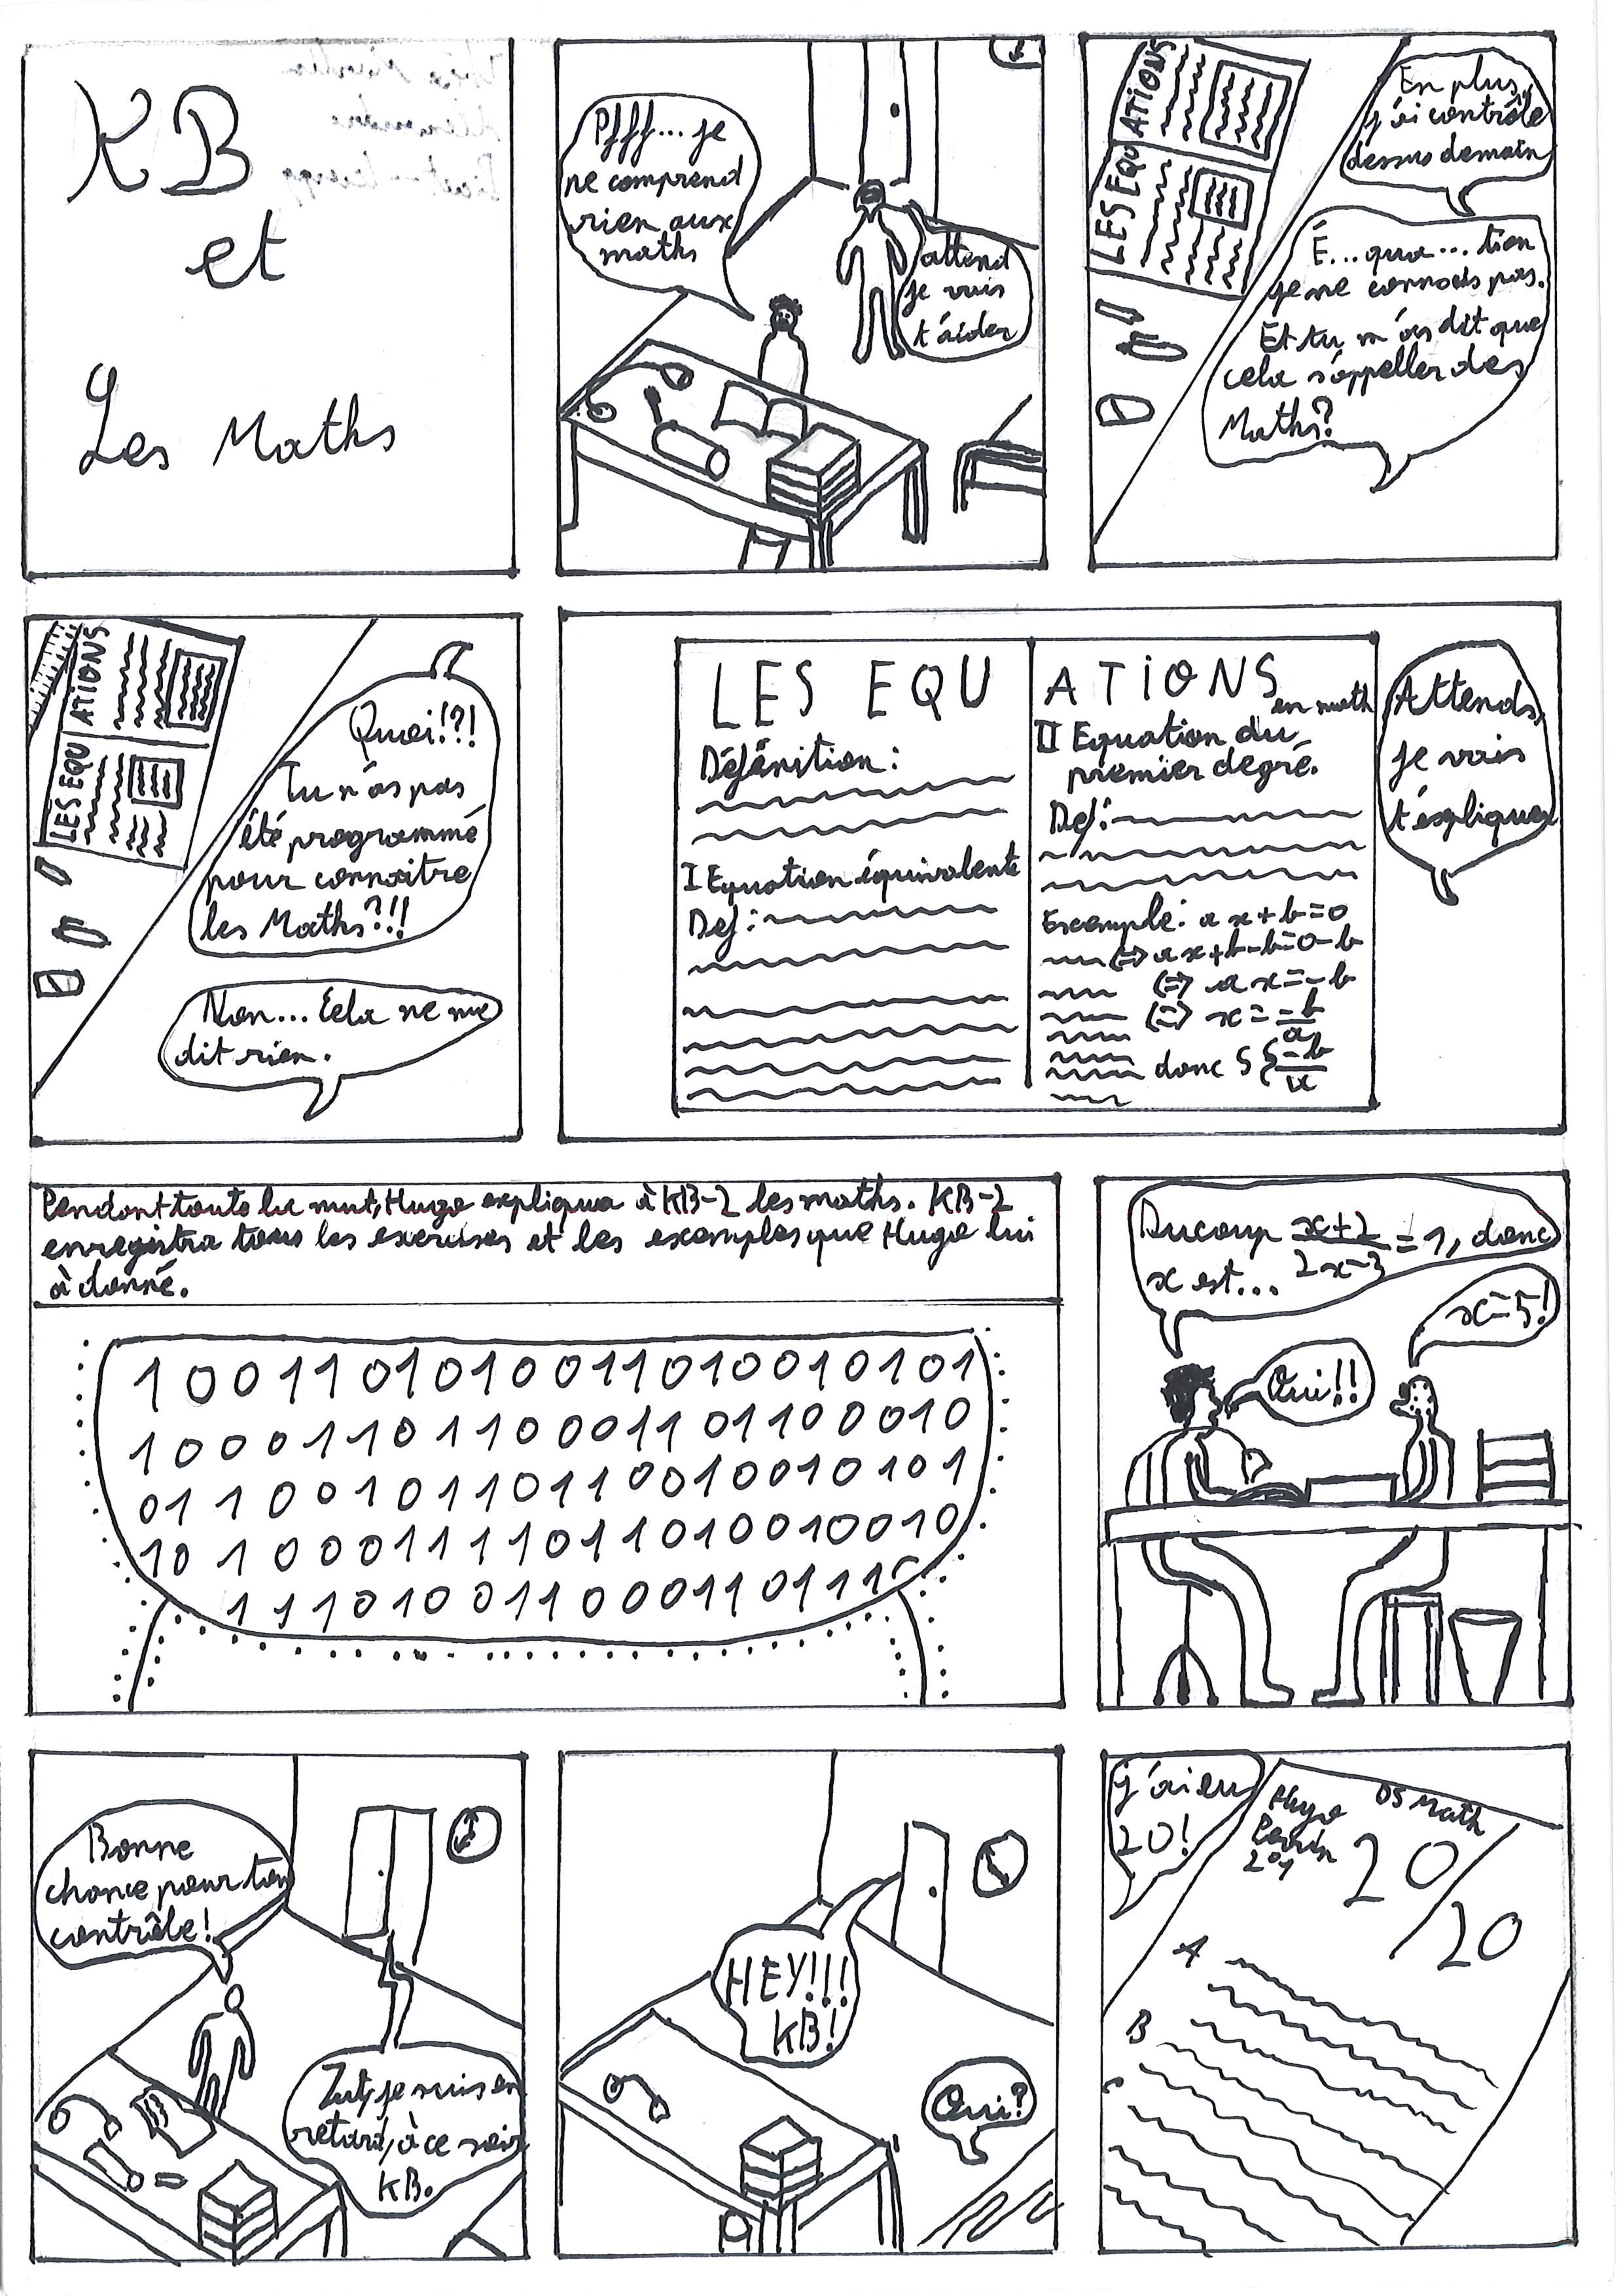 KB
et
Les Maths
Pfff... je
ne comprend
rien aux
maths
attend
je vais
t'aider
LES EQUATIONS
En plus,
j'ai contrôle
dessus demain
É...qua...tion
je ne connais pas.
Et tu m'as dit que
cela s'appeller des
Maths?
LES EQUATIONS
Quoi!?!
Tu n'as pas
été programmé
pour connaitre
les Maths?!!
Non... Cela ne me
dit rien.
LES EQU
Définition:
I Equation équivalente
Def:
ATIONS
en math
II Equation du
premier degré.
Def:
Exemple: ax+b=0
(=) ax+b-b=0-b
(=) ax=-b
(=) x=-b/a
donc S {-b/a
Attends,
je vais
t'expliquer
Pendant toute la nuit, Hugo expliqua à KB-2 les maths. KB-2
enregistra tous les exercises et les exemples que Hugo lui
à donné.
1001101010011010010101
1000110110001101100010
0110010110110010010101
1010001111011010010010
11101001100011011110
Ducoup x+2/2x-3=1, donc
x est...
x=5!
Oui!!
Bonne
chance pour ton
contrôle!
Zut, je suis en
retard, à ce soir
KB.
HEY!!!
KB!
Oui?
j'ai eu
20!
DS Math
Hugo
201
20/20
A
B
C